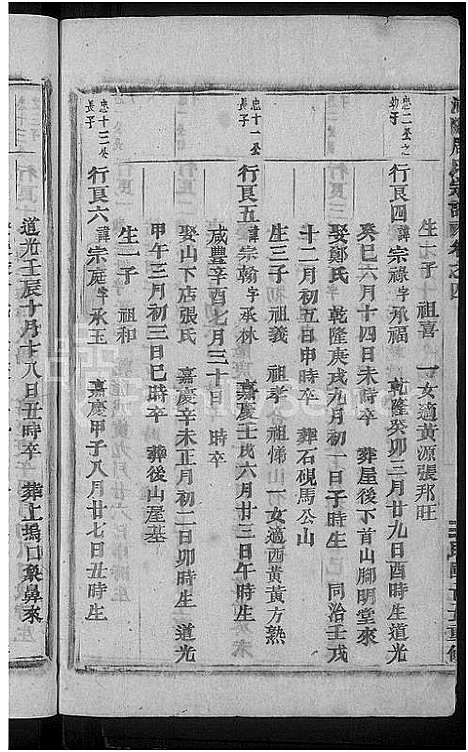 生一子 祖喜 一女適黃源張邦旺
忠二公之幼子
行良四諱宗祿字承福 乾隆癸卯三月廿九日酉時生道光
癸巳六月十四日未時卒 葬屋後下首山腳明堂來
娶鄭氏 乾隆庚戌九月初一日子時生 同治壬戌
十二月初五日申時卒 葬石硯馬公山
生三子 祖義 祖孝 祖悌 一女適西黃黃方熟
忠十一公長子
行良五諱宗翰字承林 嘉慶壬戌六月廿三日午時生
咸豐辛酉七月三十日 時卒
娶山下店張氏 嘉慶辛未正月初二日卯時生 道光
甲午三月初三日巳時卒 葬後山屋基
生一子 祖和
忠十三公長子
行良六諱宗庭字承玉 嘉慶甲子八月廿七日丑時生
道光壬辰十月十八日丑時卒 葬上塢口象鼻來